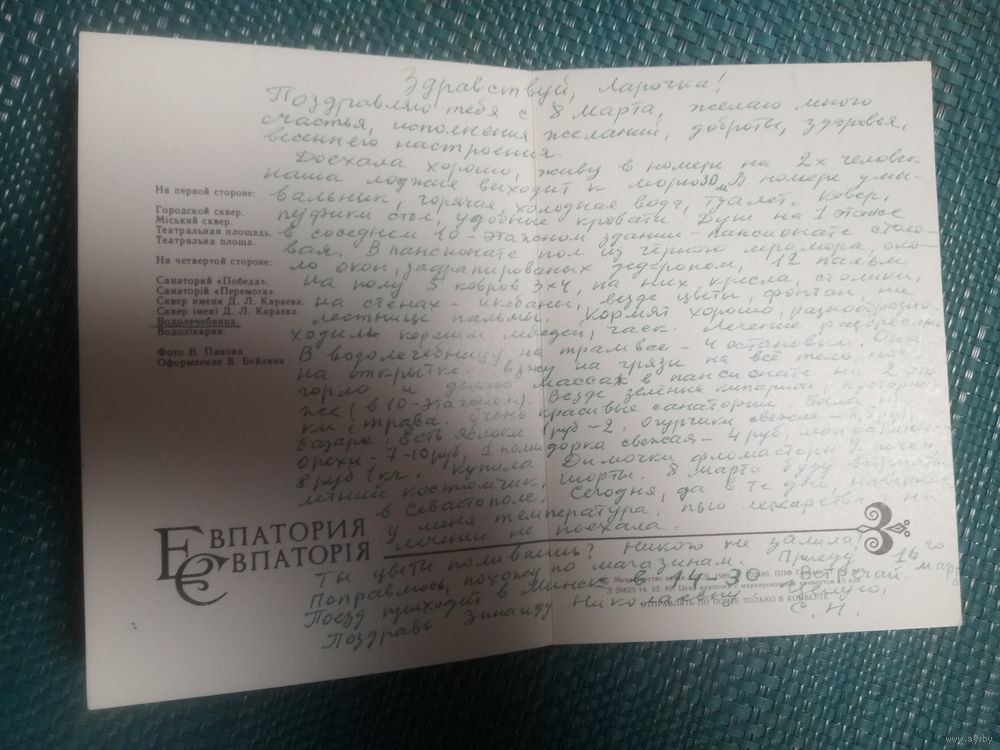 Здравствуй, Ларочка!
Поздравляю тебя с 8 Марта, желаю много
счастья, исполнения желаний, доброты, здоровья,
весеннего настроения.
Доехала хорошо, живу в номере на 2х человек
наша лоджия выходит к морю 30 м. В номере умы-
вальник, горячая, холодная вода, туалет, ковёр,
пуфики стол, удобные кровати. Душ на 1 этаже
в соседнем 10-этажном здании - пансионате столо-
вая. В пансионате пол из чёрного мрамора, око-
ло окон, задрапированых дедероном, 12 пальм
на полу 5 ковров 3х4, на них кресла, столики,
на стенах - икебаны, везде цветы, фонтан, на
лестнице пальмы. Кормят хорошо, разнообразно.
ходили кормим лебедей, чаек. Лечение
В водолечебницу на трамвае - 4 остановки. Она
на открытке. Вижу на грязи на всё тело,
горло и делаю массаж в пансионате на 2 эта-
же (в 10-этажном). Везде зелёные кипарисы, кустарни-
ки, трава. Очень красивые санатории. Была на
базаре. Есть яблоки 1 руб - 2, огурчики свежие -
орехи - 7-10 руб, 1 помидорка свежая - 4 руб,
8 руб 1 кг. Купила Димочке фломастеры,
летний костюмчик, шорты. 8 Марта буду
в Севастополе. Сегодня, да в те дни,
у меня температура, пью лекарства, на
лечения не поехала.
Ты цветы поливаешь? Никого не залила?
Поправлюсь, похожу по магазинам. Приеду 14го марта
Поезд приходит в Минск в 14-30 Встречай.
Поздравь Зинаиду Николаевну Целую,
С. Н.
На первой стороне:
Городской сквер.
Міський сквер.
Театральная площадь.
Театральна площа.
На четвертой стороне:
Санаторий «Победа».
Санаторій «Перемога».
Сквер имени Д. Л. Караева.
Сквер імені Д. Л. Караева.
Водолечебница.
Водолікарня.
Фото В. Панова
Оформление В. Бейлина
ЕВПАТОРИЯ
ЄВПАТОРІЯ
З
Л 26623 14. 02. 89.
ОТПРАВЛЯТЬ ПО ПОЧТЕ ТОЛЬКО В КОНВЕРТЕ
www.ay.by